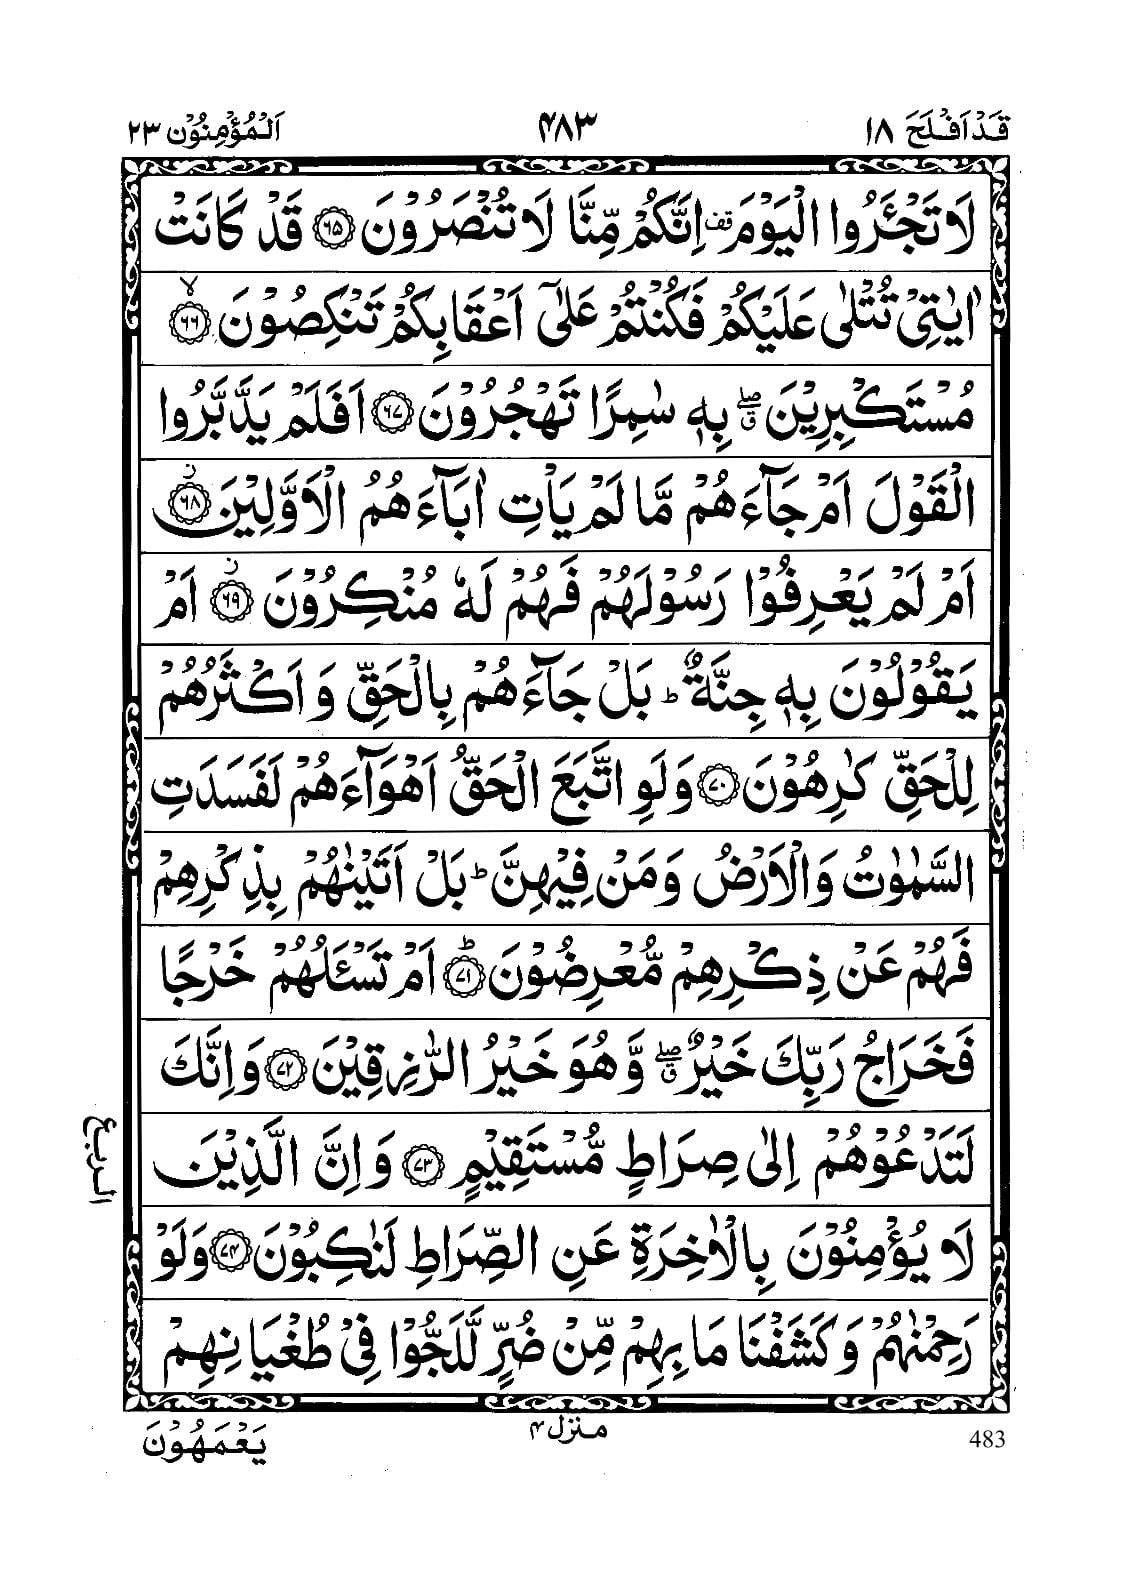 قَدْ اَفْلَحَ ١٨
۴٨٣
اَلْمُؤْمِنُوْن ٢٣
لَا تَجْـَٔرُوا الْيَوْمَ ۫ اِنَّكُمْ مِّنَّا لَا تُنْصَرُوْنَ ﴿٦٥﴾ قَدْ كَانَتْ
اٰيٰتِيْ تُتْلٰى عَلَيْكُمْ فَكُنْتُمْ عَلٰٓى اَعْقَابِكُمْ تَنْكِصُوْنَ ﴿٦٦﴾ ۙ
مُسْتَكْبِرِيْنَ ۖ ۗ بِهٖ سٰمِرًا تَهْجُرُوْنَ ﴿٦٧﴾ اَفَلَمْ يَدَّبَّرُوا
الْقَوْلَ اَمْ جَآءَهُمْ مَّا لَمْ يَاْتِ اٰبَآءَهُمُ الْاَوَّلِيْنَ ﴿٦٨﴾ ز
اَمْ لَمْ يَعْرِفُوْا رَسُوْلَهُمْ فَهُمْ لَهٗ مُنْكِرُوْنَ ﴿٦٩﴾ ز اَمْ
يَقُوْلُوْنَ بِهٖ جِنَّةٌ ؕ بَلْ جَآءَهُمْ بِالْحَقِّ وَ اَكْثَرُهُمْ
لِلْحَقِّ كٰرِهُوْنَ ﴿٧٠﴾ وَلَوِ اتَّبَعَ الْحَقُّ اَهْوَآءَهُمْ لَفَسَدَتِ
السَّمٰوٰتُ وَالْاَرْضُ وَمَنْ فِيْهِنَّ ؕ بَلْ اَتَيْنٰهُمْ بِذِكْرِهِمْ
فَهُمْ عَنْ ذِكْرِهِمْ مُّعْرِضُوْنَ ﴿٧١﴾ ؕ اَمْ تَسْـَٔلُهُمْ خَرْجًا
فَخَرَاجُ رَبِّكَ خَيْرٌ ۖ ۗ وَّهُوَ خَيْرُ الرّٰزِقِيْنَ ﴿٧٢﴾ وَاِنَّكَ
لَتَدْعُوْهُمْ اِلٰى صِرَاطٍ مُّسْتَقِيْمٍ ﴿٧٣﴾ وَاِنَّ الَّذِيْنَ
لَا يُؤْمِنُوْنَ بِالْاٰخِرَةِ عَنِ الصِّرَاطِ لَنٰكِبُوْنَ ﴿٧۴﴾ وَلَوْ
رَحِمْنٰهُمْ وَكَشَفْنَا مَا بِهِمْ مِّنْ ضُرٍّ لَّلَجُّوْا فِيْ طُغْيَانِهِمْ
الربع
منزل ۴
يَعْمَهُوْنَ
483